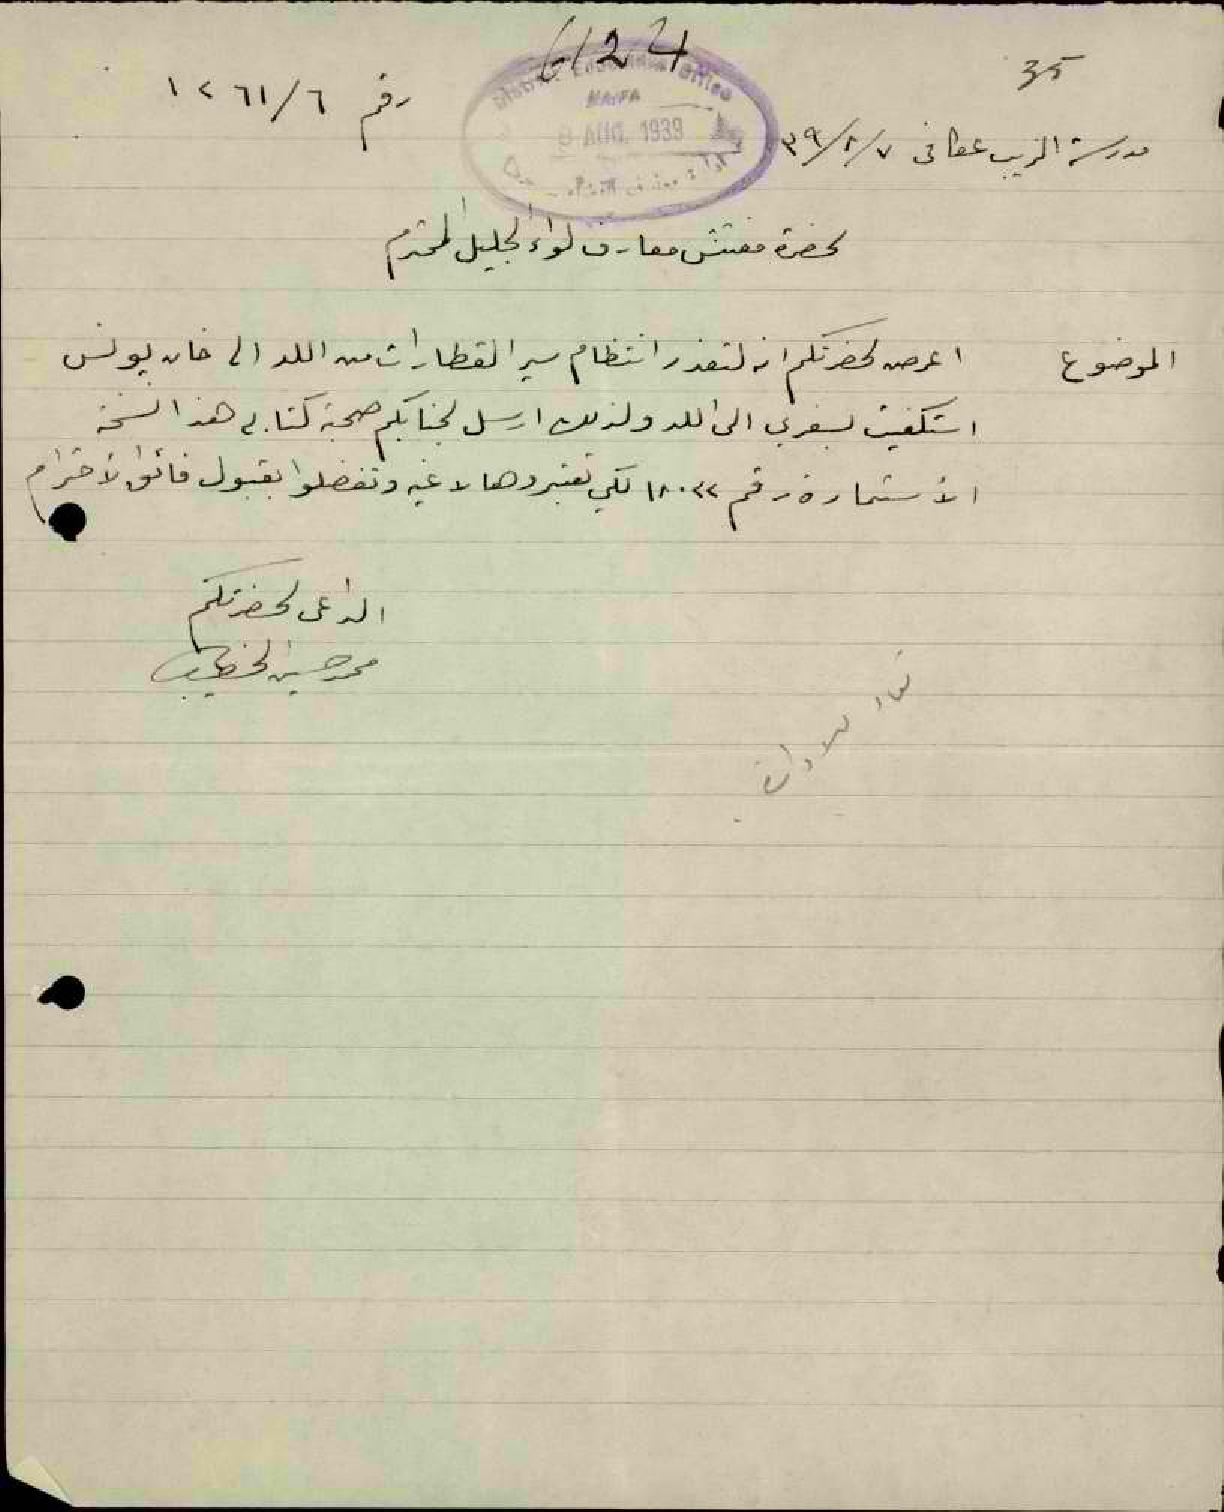 6124
35
رقم ٦/ ١٢٦١
District Education Office
HAIFA
8 AUG. 1939
مدرسة الزيب عكا في ٣٩/٢/٧
لحضرة مفتش معارف لواء الجليل المحترم
الموضوع اعرض لحضرتكم انه لتعذر انتظام سير القطارات من اللد الى خان يونس
استكفيت بسفري الى اللد ولذلك ارسل لجنابكم صحبة كتابي هذا النسخة
الاستمارة رقم ١٨٠٢٢ لكي تعتبروها لاغيه وتفضلوا بقبول فائق الاحترام
الداعي لحضرتكم
محمد حسين الخطيب
تعاد للادارة